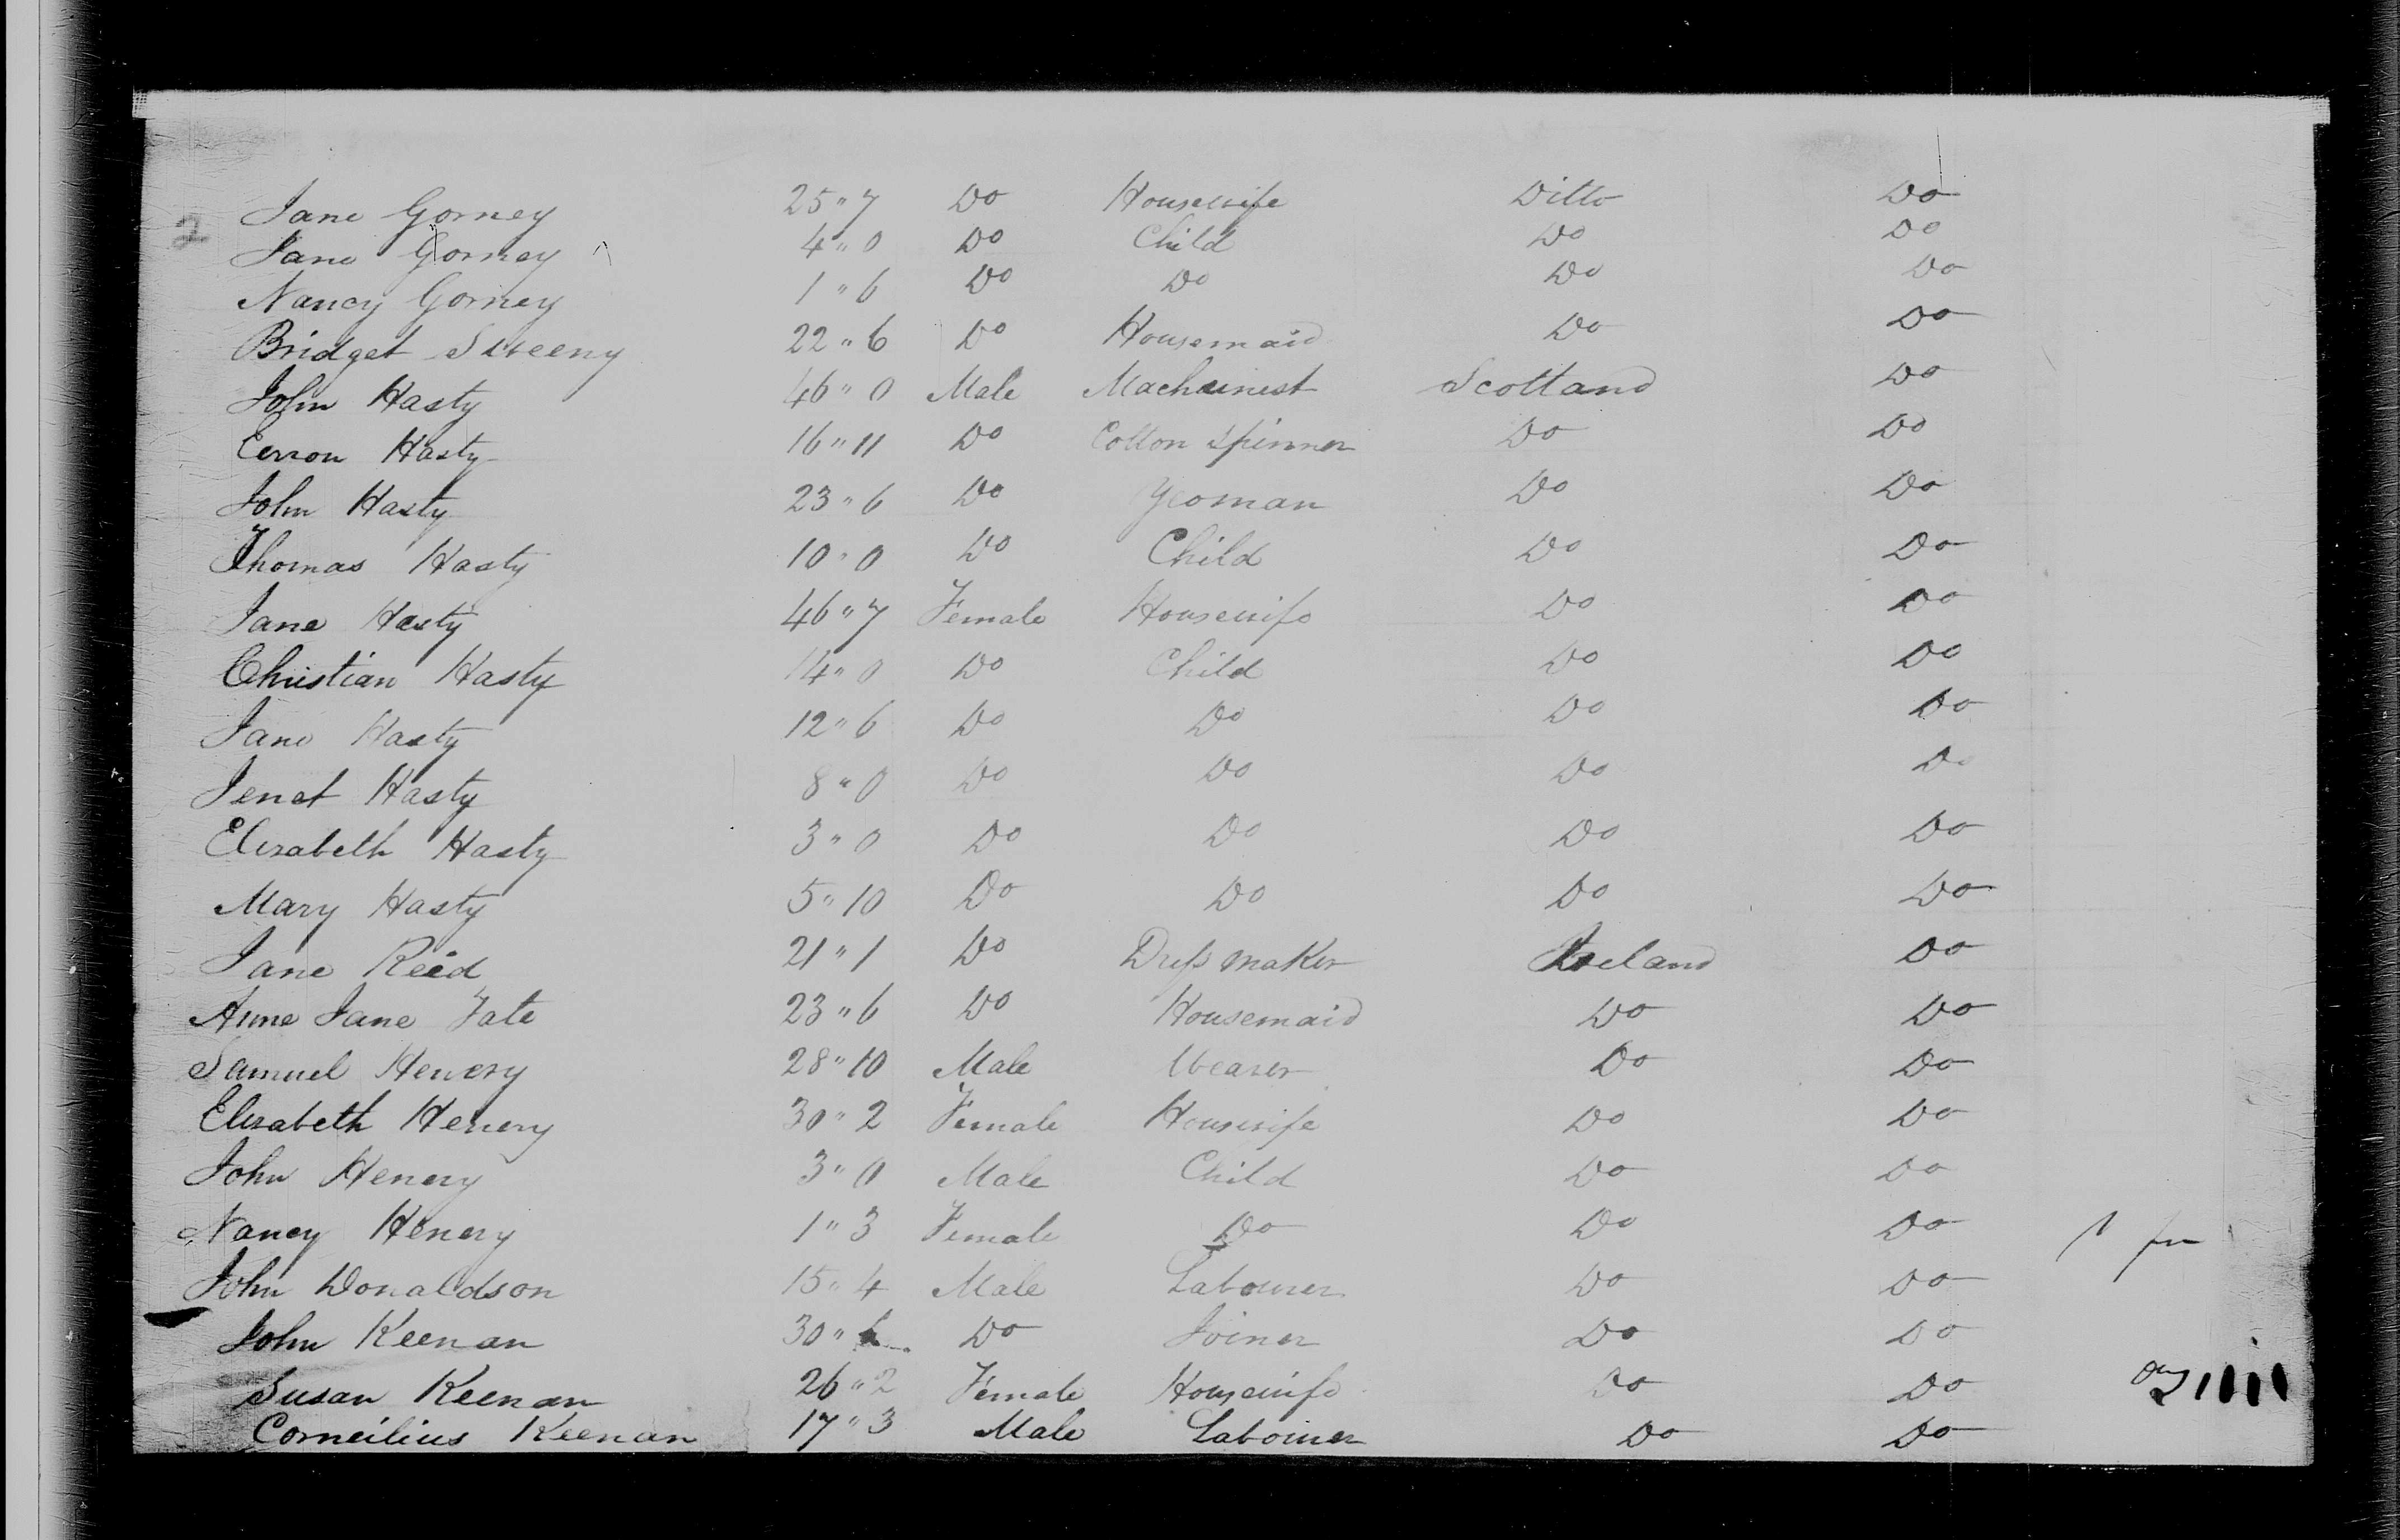 2
Jane Gorney 25 " 7 Do Housewife Ditto Do
Jane Gorney 4 " 0 Do Child Do Do
Nancy Gorney 1 " 6 Do Do Do Do
Bridget Sweeny 22 " 6 Do Housemaid Do Do
John Hasty 46 " 0 Male Machinest Scotland Do
Hasty 16 " 11 Do Cotton Spinner Do Do
John Hasty 23 " 6 Do Yeoman Do Do
Thomas Hasty 10 " 0 Do Child Do Do
Jane Hasty 46 " 7 Female Housewife Do Do
Christian Hasty 14 " 0 Do Child Do Do
Jane Hasty 12 " 6 Do Do Do Do
Jenet Hasty 8 " 0 Do Do Do Do
Elizabeth Hasty 3 " 0 Do Do Do Do
Mary Hasty 5 " 10 Do Do Do Do
Jane Reid 21 " 1 Do Dress maker Ireland Do
Anne Jane Tate 23 " 6 Do Housemaid Do Do
Samuel Henery 28 " 10 Male Weaver Do Do
Elizabeth Henery 30 " 2 Female Housewife Do Do
John Henery 3 " 0 Male Child Do Do
Nancy Henery 1 " 3 Female Do Do Do
John Donaldson 15 " 4 Male Labourer Do Do
John Keenan 30 " Do Joiner Do Do
Susan Keenan 26 " 2 Female Housewife Do Do
Corneilius Keenan 17 " 3 Male Labourer Do Do